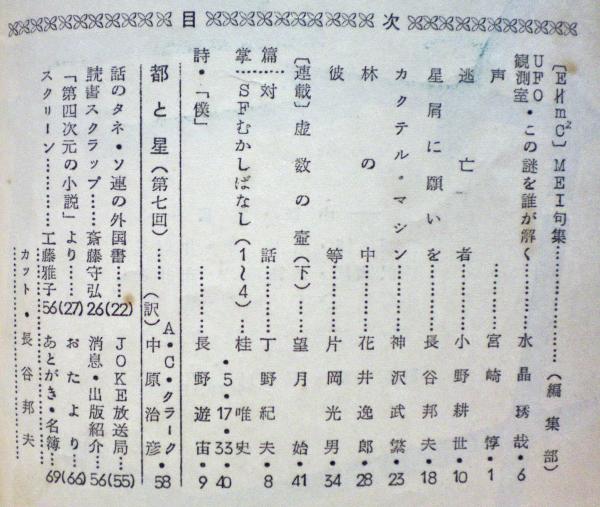 目次
〔E≠mC²〕MEI句集…………(編集部)
UFO観測室・この謎を誰が解く……水晶琇哉・6
声…………宮崎惇・1
逃亡者…………小野耕世・10
星屑に願いを…………長谷邦夫・18
カクテル・マシン…………神沢武繁・23
林の中…………花井逸郎・28
彼等…………片岡光男・34
〔連載〕虚数の壷(下)……望月始・41
掌篇
対話…………丁野紀夫・8
SFむかしばなし(1〜4)…桂唯史・5・17・33・40
詩・「僕」…………長野遊宙・9
都と星(第七回)……(訳)A・C・クラーク 中原治彦・58
話のタネ・ソ連の外国書……(22)
JOKE放送局…(55)
読書スクラップ……斎藤守弘26
消息・出版紹介…56
「第四次元の小説」より……(27)
おたより…(66)
スクリーン…………工藤雅子56
あとがき・名簿…69
カット・長谷邦夫